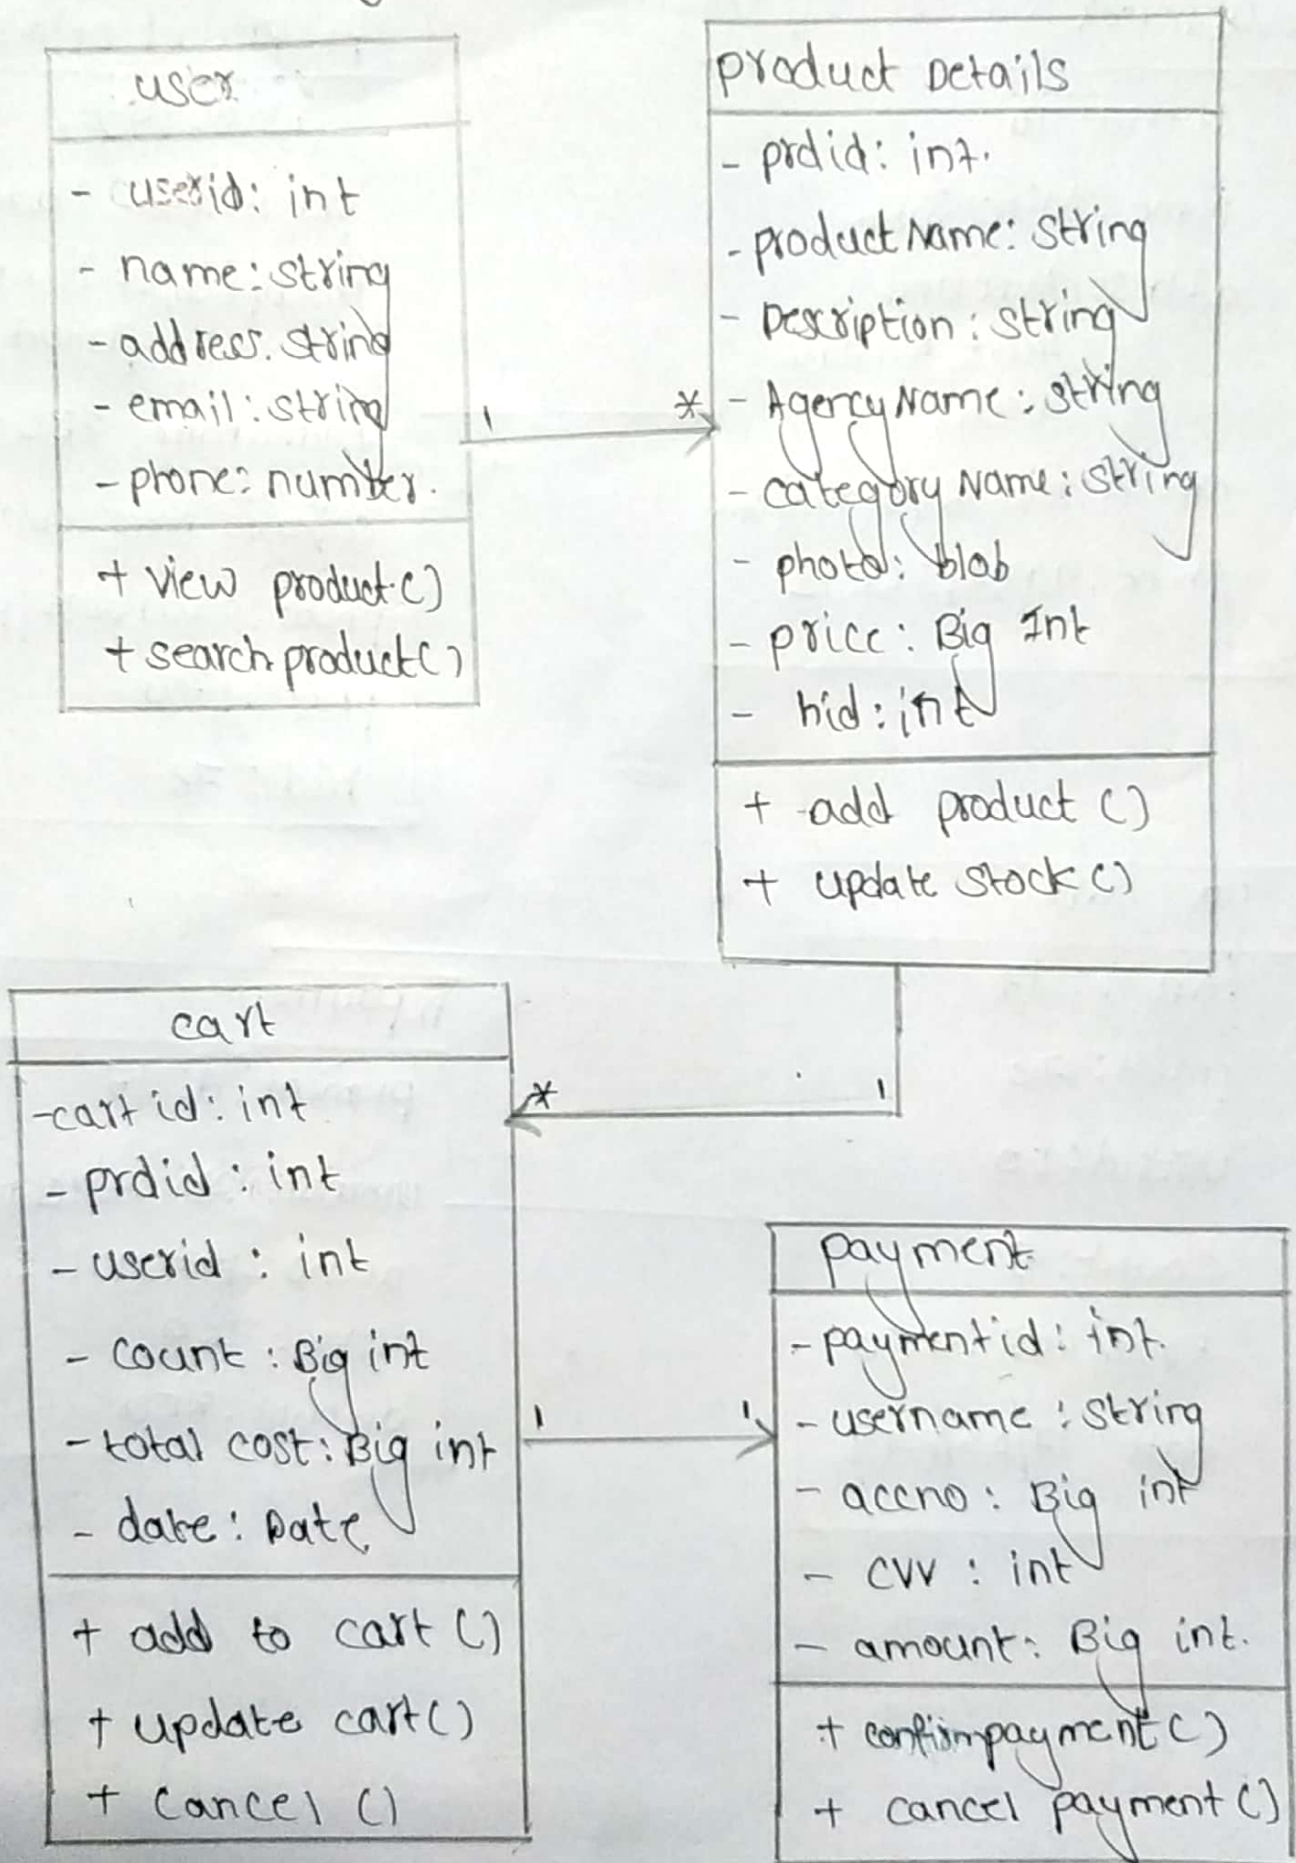 user
- userid: int
- name: string
- address. string
- email: string
- phone: number.
+ view product()
+ search product()
1
*
product Details
- prdid: int.
- product Name: String
- Description: String
- Agency Name: String
- category Name: String
- photo: blob
- price: Big Int
- hid: int
+ add product ()
+ update stock ()
*
1
cart
- cart id: int
- prdid: int
- userid: int
- count: Big int
- total cost: Big int
- date: Date
+ add to cart ()
+ update cart()
+ cancel ()
1
1
payment
- payment id: int.
- username: String
- accno: Big int
- cvv: int
- amount: Big int.
+ confirmpayment()
+ cancel payment()